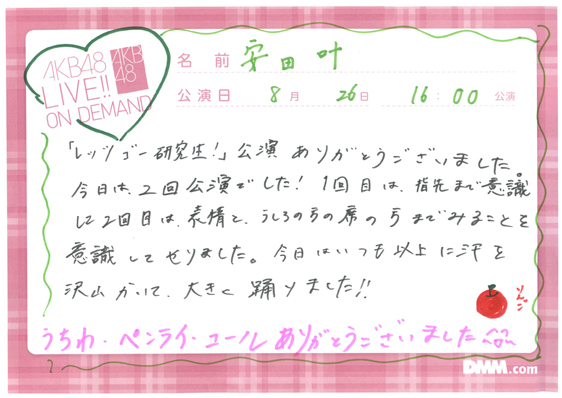 AKB48
LIVE!!
ON DEMAND
AKB
48
名前 安田叶
公演日 8月 26日 16:00 公演
「レッツゴー研究生!」公演 ありがとうございました。
今日は、2回公演でした! 1回目は、指先まで意識
して2回目は、表情と、うしろの方の席の方までみることを
意識してやりました。今日はいつも以上に汗を
沢山かいて、大きく踊りました!!
りんご
うちわ・ペンライ・コールありがとうございました
DMM.com